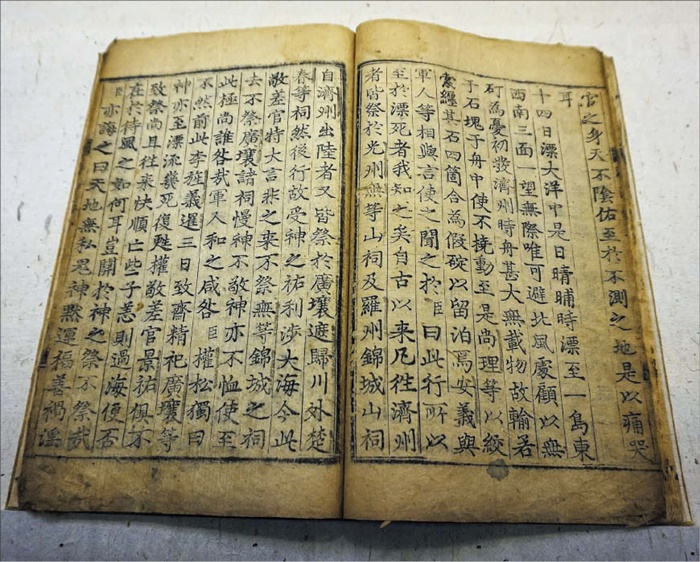 官之身天不陰佑至於不測之地是以痛哭
耳
十四日漂大洋中是日晴晡時漂至一島東
西南三面一望無際唯可避北風處顧以無
矴為憂初發濟州時舟甚大無載物故輸若
干石塊于舟中使不撓動至是尚理等以絞
索纏其石四箇合為假碇以留泊焉安義與
軍人等相與言使之聞之於臣曰此行所以
至於漂死者我知之矣自古以来凡徃濟州
者皆祭於光州無等山祠及羅州錦城山祠
自濟州出陸者又皆祭於廣壤遮歸川外楚
春等祠然後行故受神之祐利涉大海今此
敬差官特大言非之来不祭無等錦城之祠
去不祭廣壤諸祠慢神不敬神亦不恤使至
此極尚誰咎哉軍人和之咸咎臣權松獨曰
不然前此李旌義暹三日致齋精祀廣壤等
神亦至漂流幾死復甦權敬差官景祐俱不
致祭尚且往来快順亡些子恙則過海便否
在於待風之如何耳豈關於神之祭不祭哉
臣亦誨之曰天地無私鬼神默運福善禍淫